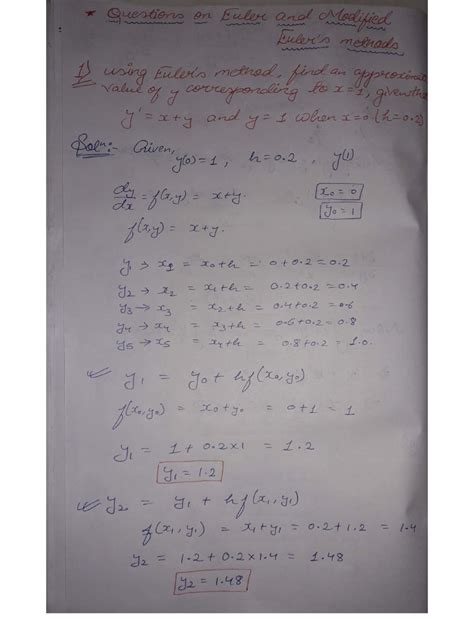 * Questions on Euler and Modified
Euler's methods
1) using Euler's method, find an approximate
value of y corresponding to x=1, given that
y' = x+y and y=1 when x=0 (h=0.2)
Soln:- Given, y(0)=1, h=0.2, y(1)
dy/dx = f(x,y) = x+y.
x0 = 0
y0 = 1
f(x,y) = x+y.
y1 → x1 = x0+h = 0+0.2 = 0.2
y2 → x2 = x1+h = 0.2+0.2 = 0.4
y3 → x3 = x2+h = 0.4+0.2 = 0.6
y4 → x4 = x3+h = 0.6+0.2 = 0.8
y5 → x5 = x4+h = 0.8+0.2 = 1.0.
y1 = y0 + hf(x0,y0)
f(x0,y0) = x0+y0 = 0+1 = 1
y1 = 1+0.2×1 = 1.2
y1 = 1.2
y2 = y1 + hf(x1,y1)
f(x1,y1) = x1+y1 = 0.2+1.2 = 1.4
y2 = 1.2+0.2×1.4 = 1.48
y2 = 1.48